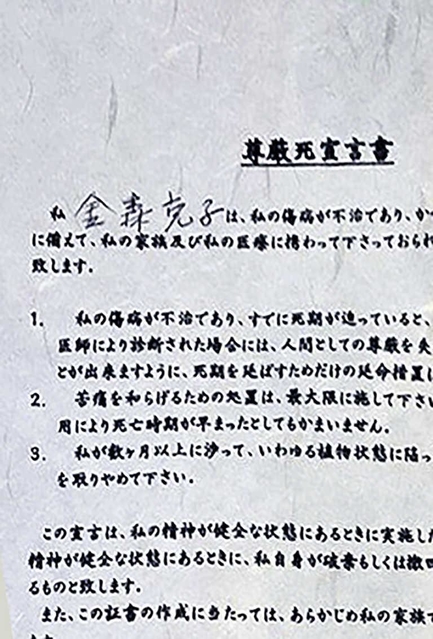 尊厳死宣言書
私 金森克子は、私の傷病が不治であり、か
に備えて、私の家族及び私の医療に携わって下さっておられ
致します。
1. 私の傷病が不治であり、すでに死期が迫っていると、
医師により診断された場合には、人間としての尊厳を失
とが出来ますように、死期を延ばすためだけの延命措置
2. 苦痛を和らげるための処置は、最大限に施して下さ
用により死亡時期が早まったとしてもかまいません。
3. 私が数ヶ月以上に渉って、いわゆる植物状態に陥っ
を取りやめて下さい。
この宣言は、私の精神が健全な状態にあるときに実施した
精神が健全な状態にあるときに、私自身が破棄もしくは撤回
るものと致します。
また、この証書の作成に当たっては、あらかじめ私の家族